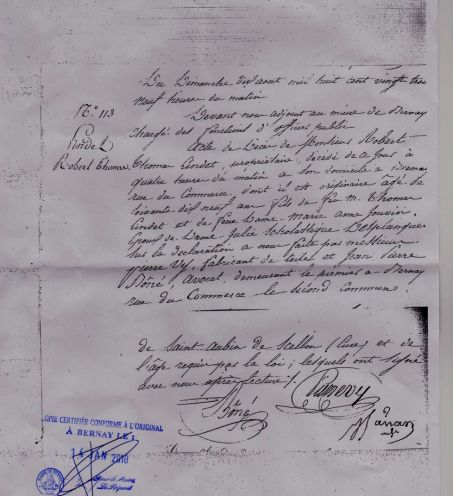 Du Dimanche dix aout mil huit cent vingt trois
neuf heures du matin
N° 113
Devant nous adjoint au maire de Bernay
chargé des fonctions d'officier public
Lindet
Robert Thomas
Acte de Décès de Monsieur Robert
Thomas Lindet, propriétaire, décédé de ce jour à
quatre heures du matin a son domicile a Bernay
rue du Commerce, dont il est originaire âgé de
soixante dix neuf ans fils de feu M. Thomas
Lindet et de feue Dame Marie anne Jouvin,
Epoux de Dame Julie Scholastique Desplanques
sur la déclaration a nous faite par messieurs
Pierre Vy, fabricant de et Jean Pierre
Bôné, Avocat, demeurant le premier a Bernay
rue du Commerce le second Commune
de Saint-aubin de Scellon (Eure) et de
l'âge requis par la loi; lesquels ont signé
avec nous après lecture.
Bôné
COPIE CERTIFIÉE CONFORME À L'ORIGINAL
A BERNAY LE :
14 JAN 2010